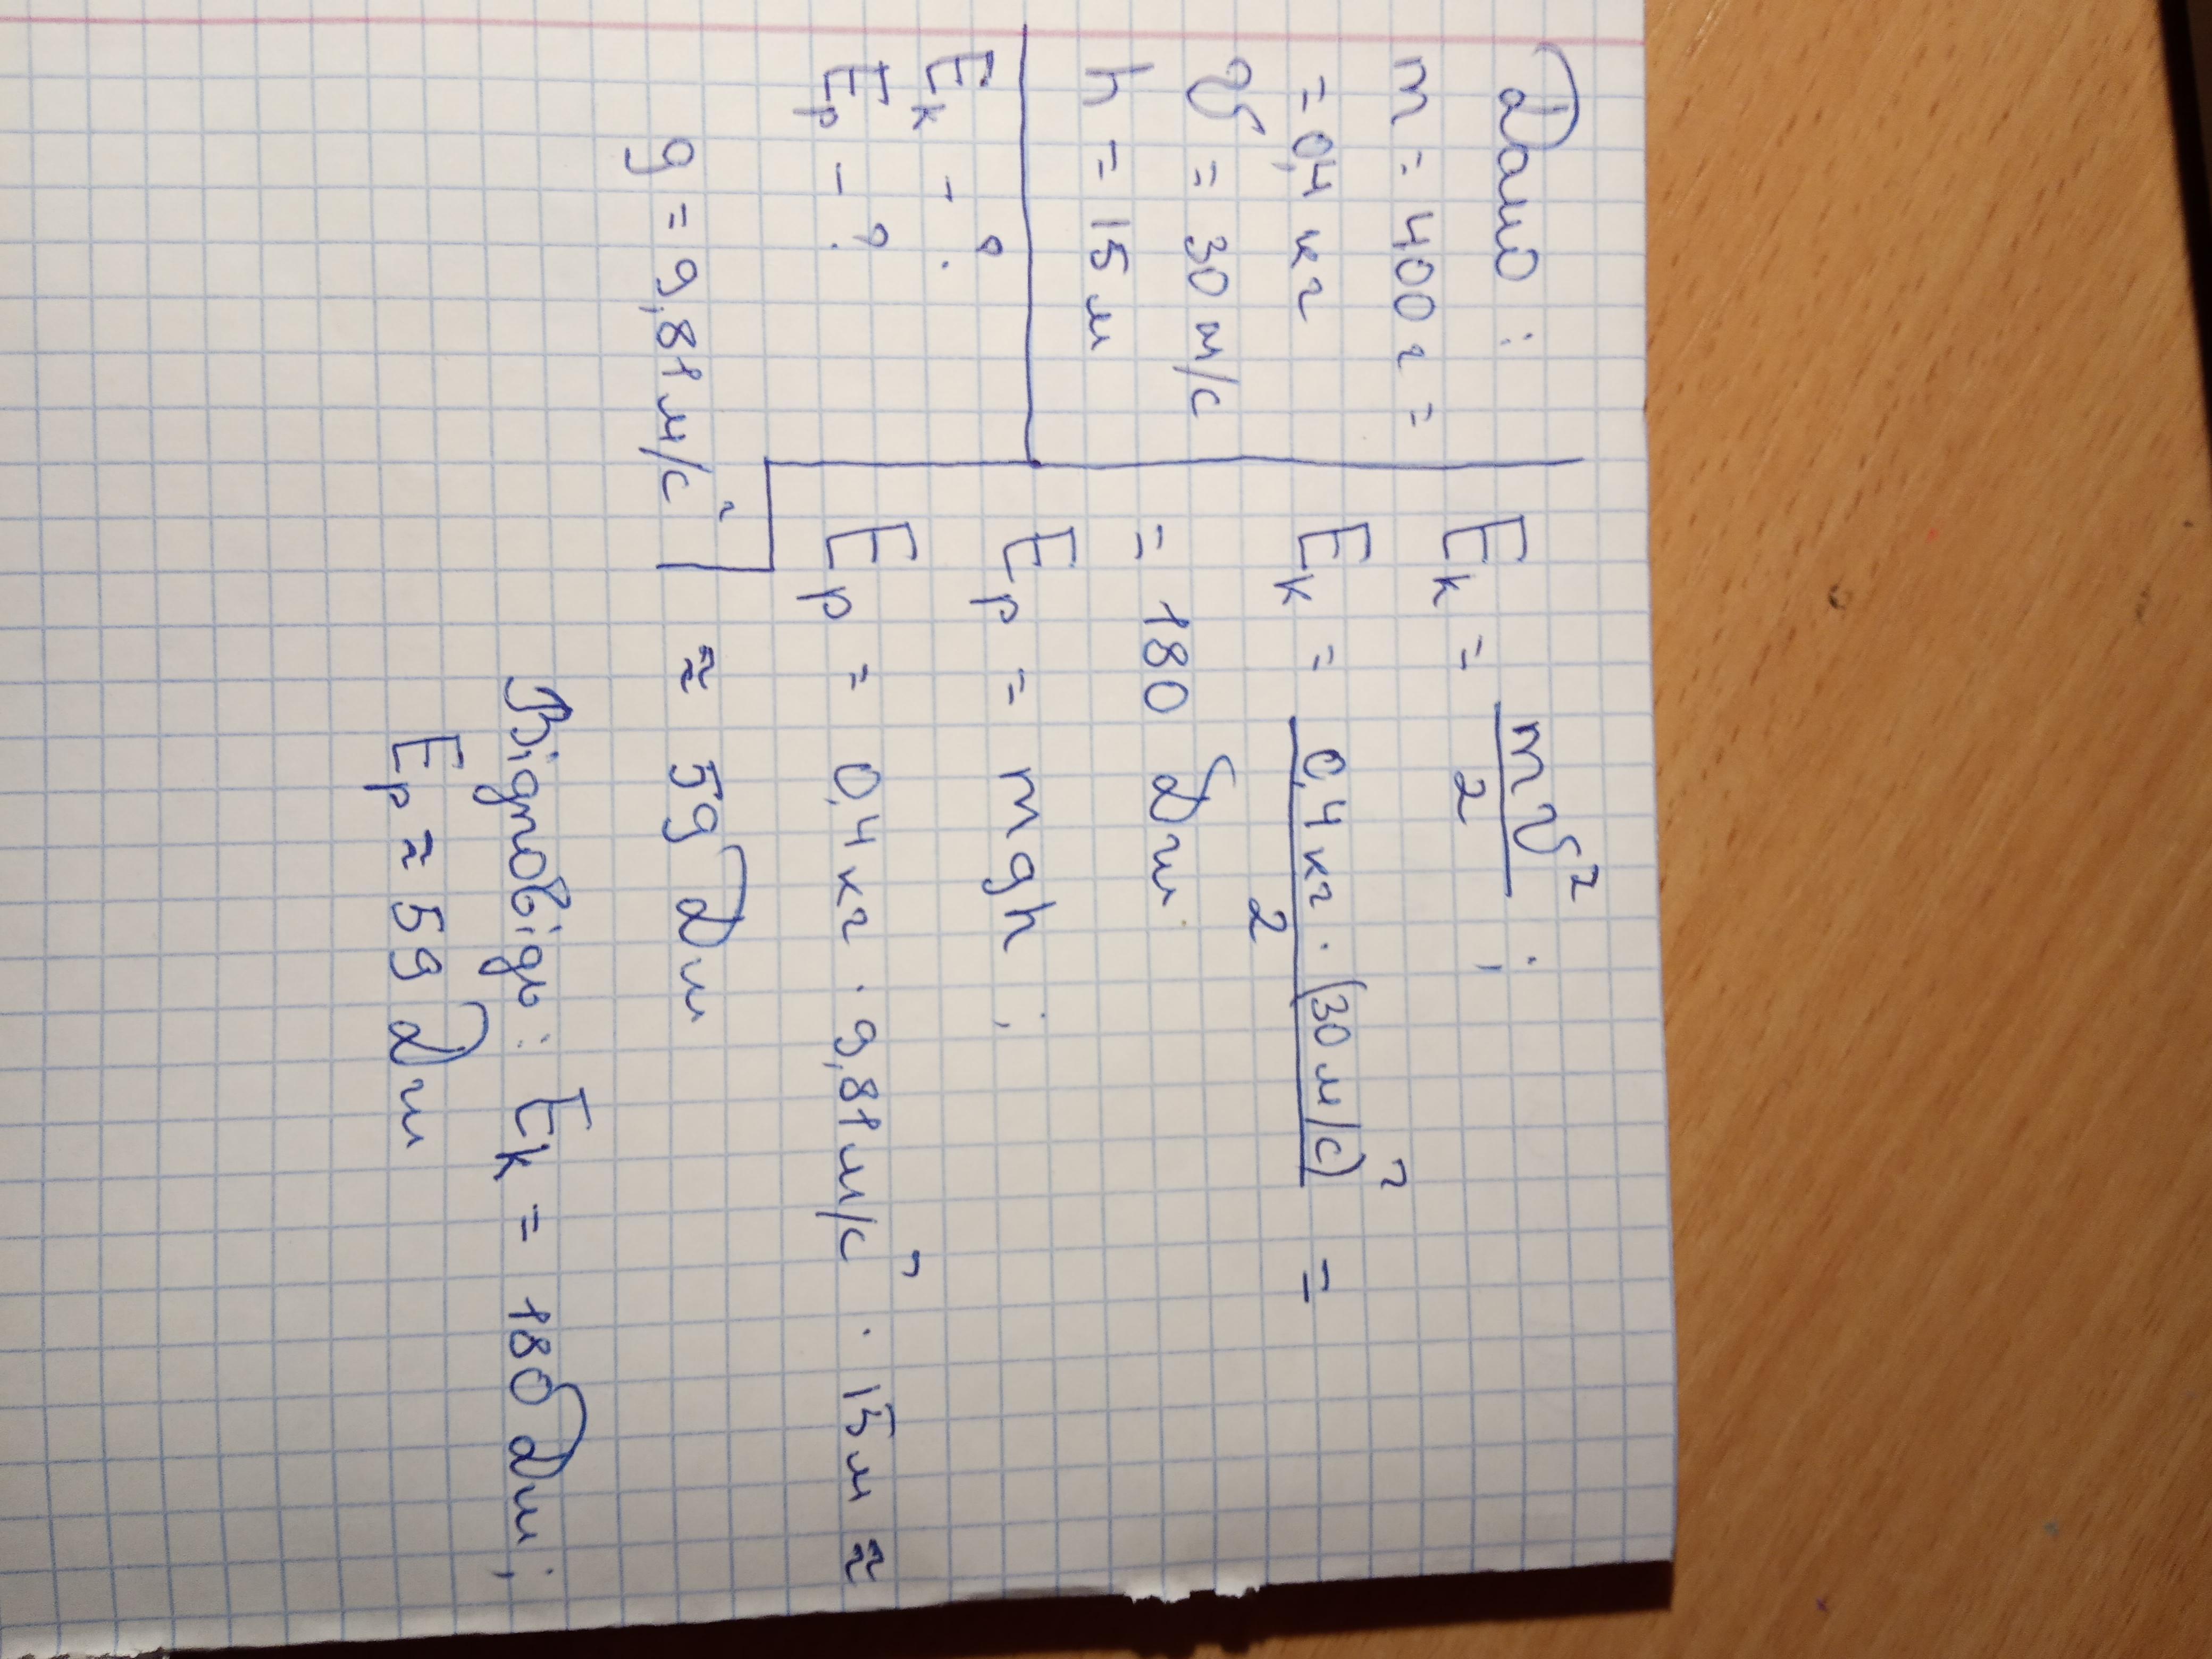 Дано:
m = 400 г =
= 0,4 кг
v = 30 м/с
h = 15 м
Eк - ?
Eр - ?
g = 9,81 м/с²
Eк = mv²/2 ;
Eк = 0,4 кг · (30 м/с)²/2 =
= 180 Дж
Eр = mgh ;
Eр = 0,4 кг · 9,81 м/с² · 15 м ≈
≈ 59 Дж
Відповідь: Eк = 180 Дж;
Eр ≈ 59 Дж